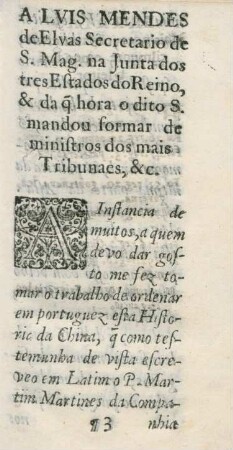 A LVIS MENDES
de Elvas Secretario de
S. Mag. na Junta dos
tres Estados do Reino,
& da q̃ hora o dito S.
mandou formar de
ministros dos mais
Tribunaes, &c.
A Instancia de
muitos, a quem
devo dar gos-
to me fez to-
mar o trabalho de ordenar
em portuguez esta Histo-
ria da China, q̃ como tes-
temunha de vista escre-
veo em Latim o P. Mar-
tim Martines da Compa-
¶ 3 nhia